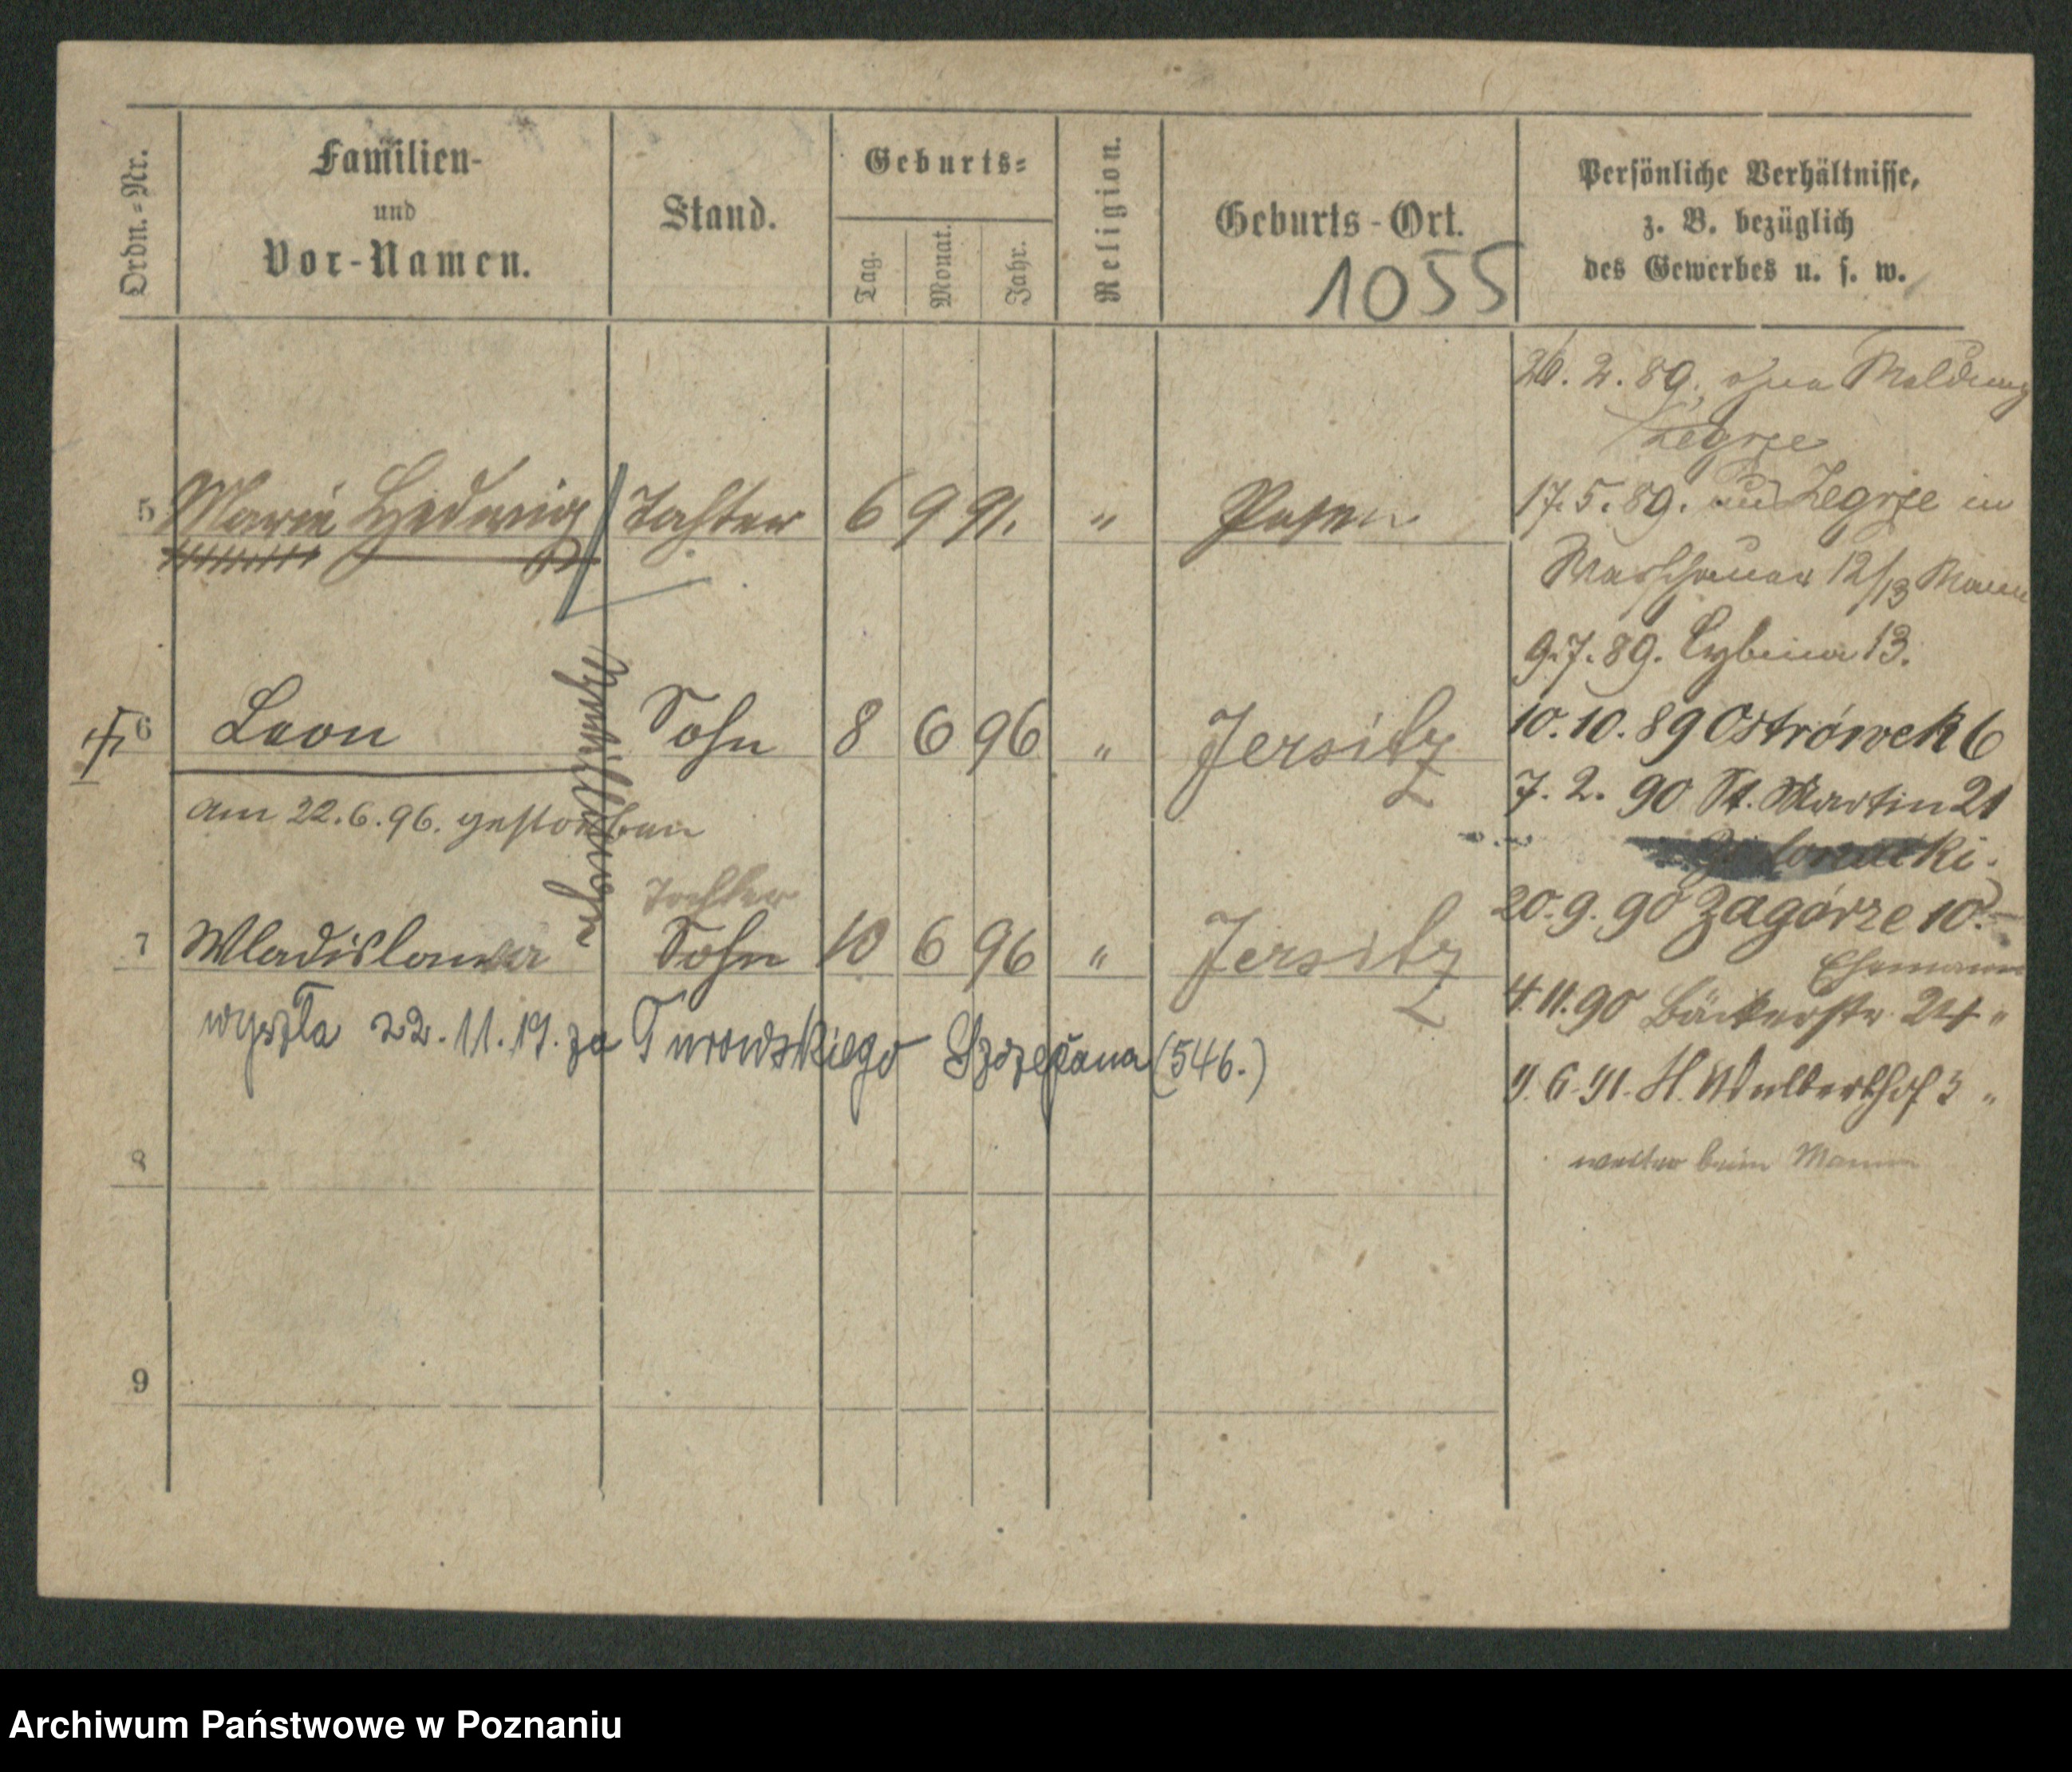 Ordn.-Nr.
Familien-
und
Vor-Namen.
Stand.
Geburts-
Tag.
Monat.
Jahr.
Religion.
Geburts-Ort.
1055
Persönliche Verhältnisse,
z. B. bezüglich
des Gewerbes u. s. w.
5 Marie Hedwig Tochter 6 9 91. " Posen
6 Leon Sohn 8 6 96 " Jersitz
am 22.6.96. gestorben
Tochter
7 Wladislawa Sohn 10 6 96 " Jersitz
wyszła 22.11.19. za Turowskiego Szczepana (546.)
8
9
26. 2. 89. ohne Meldung
Zegrze
17. 5. 89. Zegrze in
Warschauer 12/13 Mann
9. 7. 89. Cybina 13.
10. 10. 89 Ostrówek 6
7. 2. 90 St. Martin 21
20. 9. 90 Zagórze 10.
Ehemann
4. 11. 90 Bäckerstr 24 "
9. 6. 91. H. Wallberthof 3 "
weiter beim Mann
Archiwum Państwowe w Poznaniu